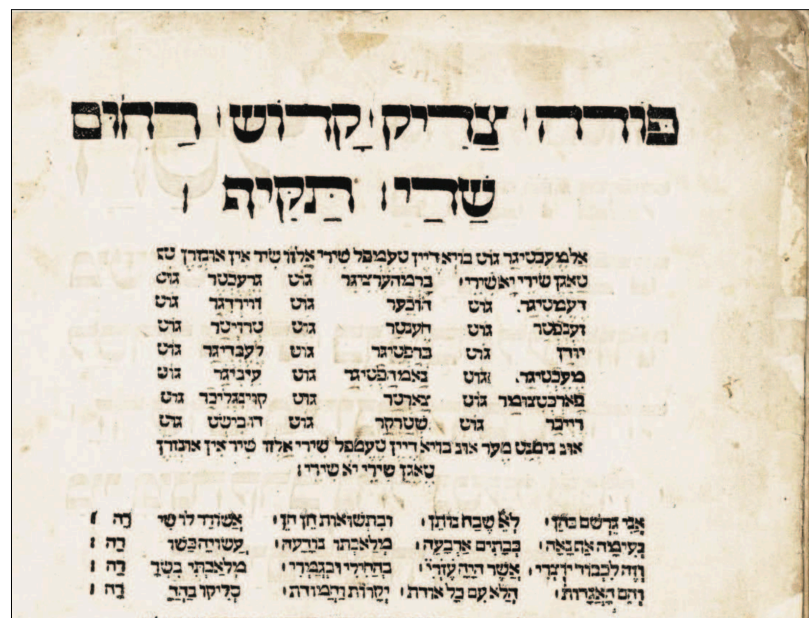 פודה צדיק קדוש רחום
שדי תקיף
אלמעכטיגר גוט בויא דיין טעמפל שירי אלזו שיר אין אונזרן
טאגן שירי יא שירי: ברמהערציגר גוט גרעכטר גוט
דעמטיגר גוט הוכער גוט ווירדגר גוט
זענפטר גוט חענטר גוט טרויטר גוט
יודן גוט גוט לעבדיגר גוט
מעכטיגר גוט נאמהפטיגר גוט עיביגר גוט
פארכטצומר גוט צארטר גוט קוינגליכר גוט
רייכר גוט שטרקר גוט דו בישט גוט
אונ נימנט מער אונ בויא דיין טעמפל שירי אלזו שיר אין אונזרן
טאגן שירי יא שירי:
אני גרשם כהן: שבח נותן: ובתשואות חן חן:
נעימה בבתים ארבעה: מלאכתו נודעה: עשויה רה
וזה אשר היה עזרי: בהחילי ובגמרי: מלאכתי רה
והם הלא עם כל אודת: יקרות וחמודת: סליקו רה